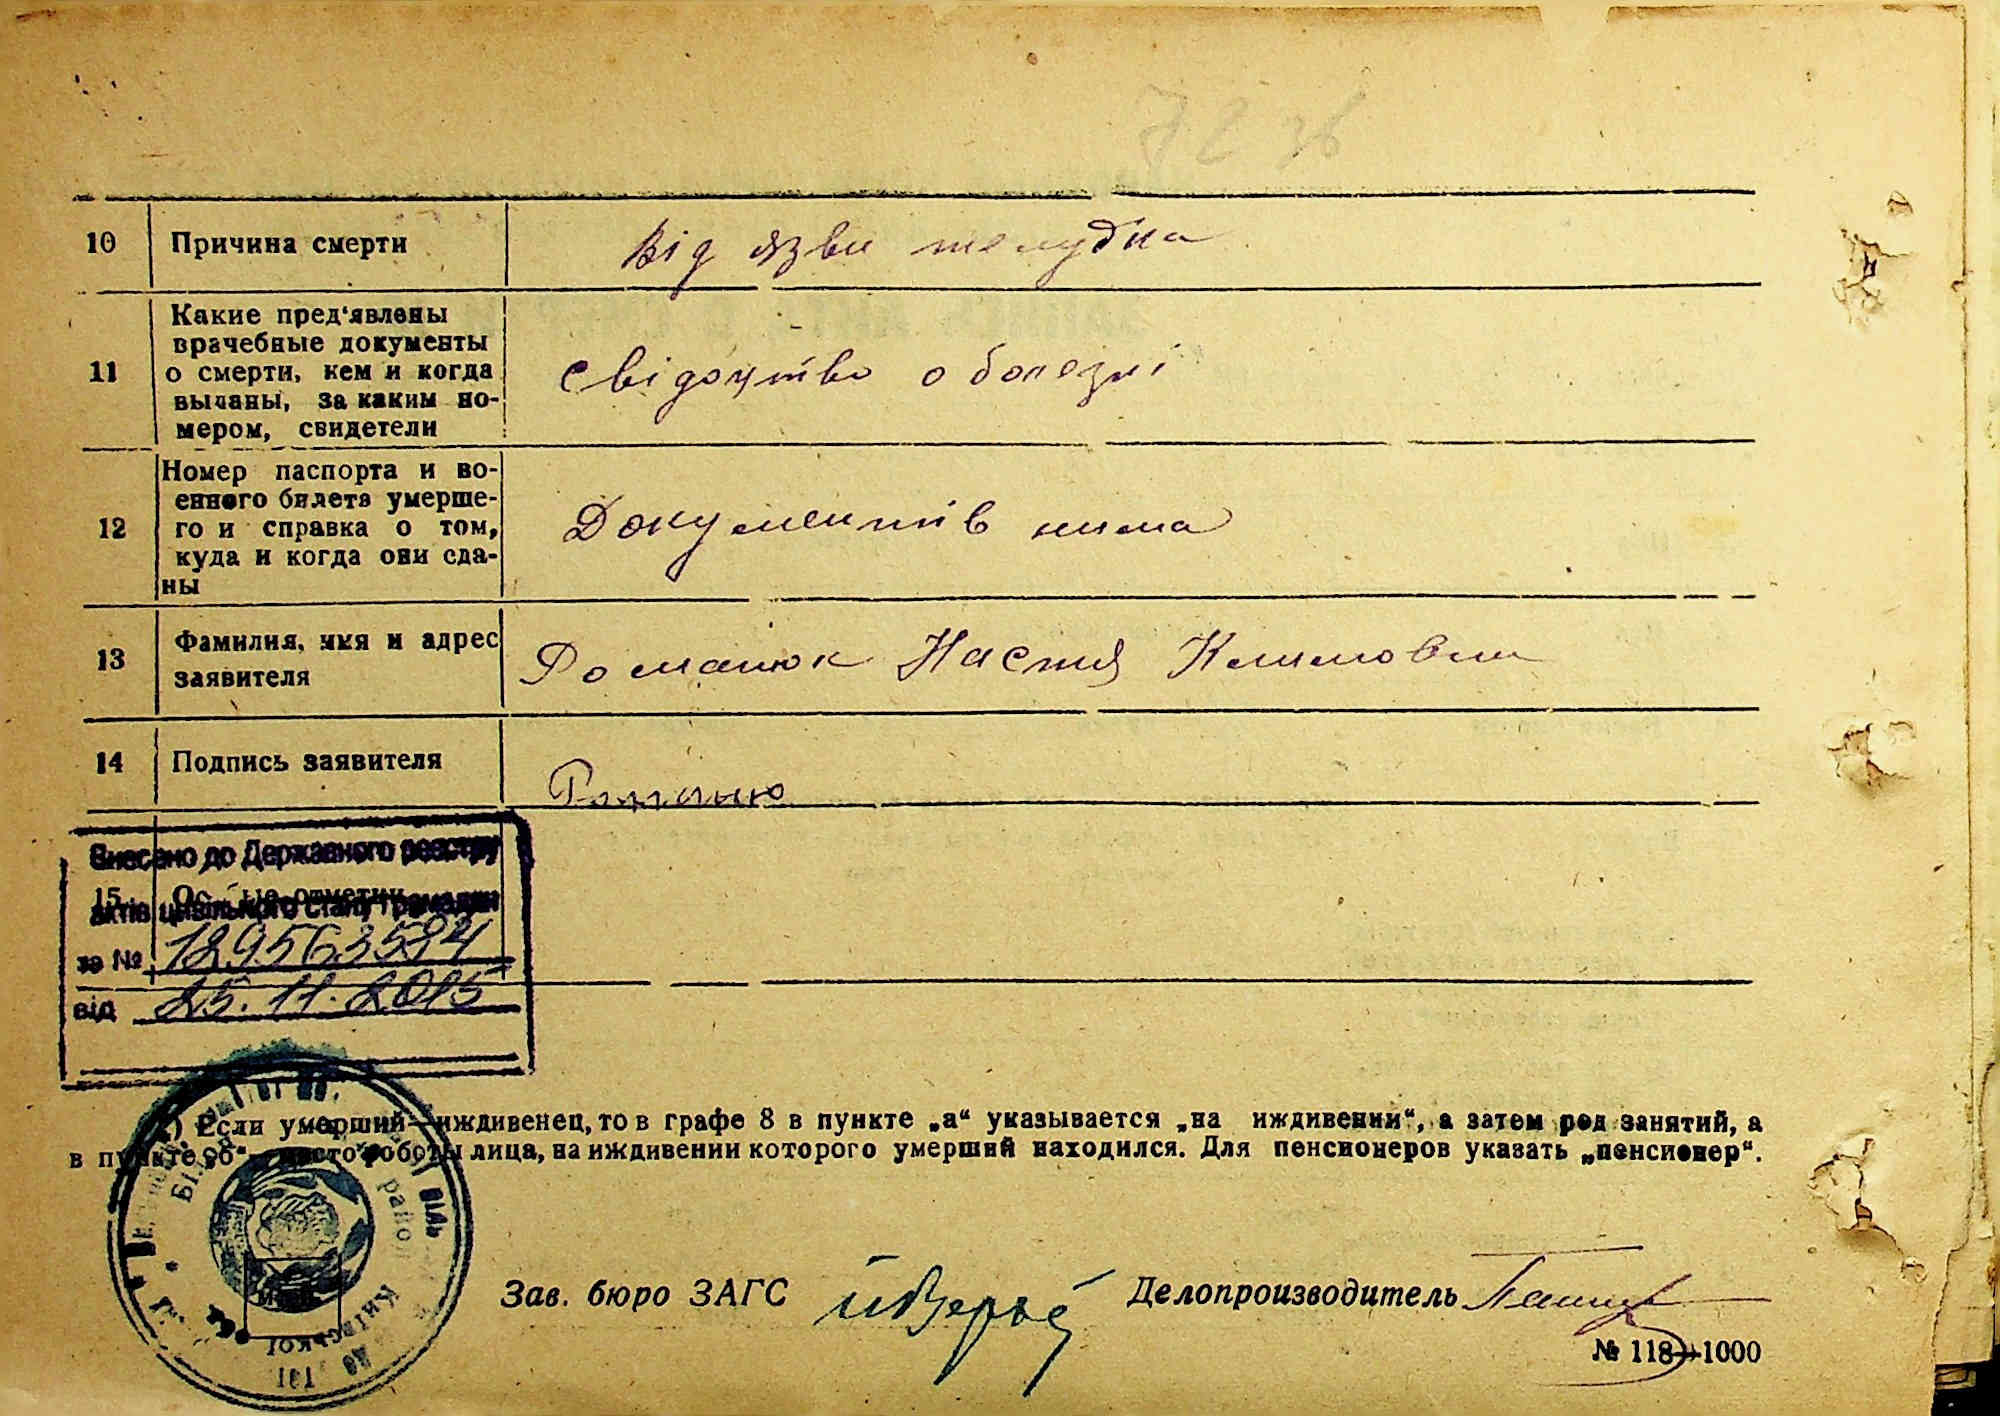 10 Причина смерти Від язви желудка
11 Какие пред'явлены
врачебные документы
о смерти, кем и когда
выданы, за каким но-
мером, свидетели
Свідоцтво о болезні
12 Номер паспорта и во-
енного билета умерше-
го и справка о том,
куда и когда они сда-
ны
Документів нима
13 Фамилия, имя и адрес
заявителя
Романюк Настя Климовна
14 Подпись заявителя
Внесено до Державного реєстру
15 Особые отметки
актів цивільного стану громадян
за № 1295635
від 25.11.2015
Если умерший—иждивенец, то в графе 8 в пункте „а“ указывается „на иждивении“, а затем род занятий, а
в пункте „б“ — место работы лица, на иждивении которого умерший находился. Для пенсионеров указать „пенсионер“.
район Київської
Зав. бюро ЗАГС
Делопроизводитель
№ 118—1000